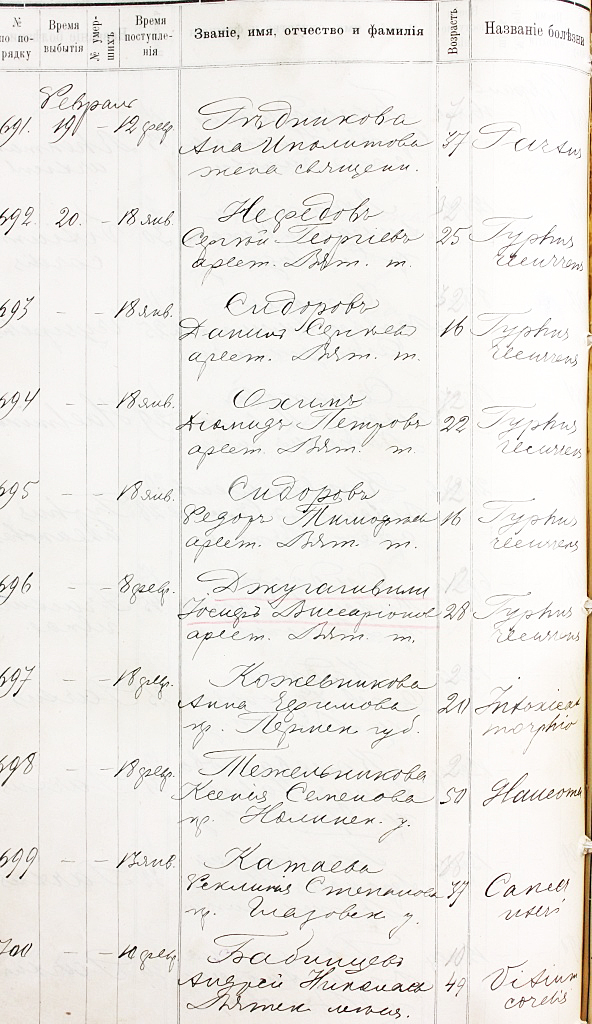 № по порядку
Время выбытія
№ умершихъ
Время поступленія
Званіе, имя, отчество и фамилія
Возрастъ
Названіе болѣзни
Февраль
691. 19 — 12 февр. 37 Partus
жена священ.
692. 20. — 18 янв. Нефедовъ
Сергѣй Георгіевъ 25 Typhus
арест. Вят. т. recurrens
693 — — 18 янв. Сидоровъ
Сергѣевъ 16 Typhus
арест. Вят. т. recurrens
694 — — 18 янв. Охимъ
Діомидъ Петровъ 22 Typhus
арест. Вят. т. recurrens
695 — — 18 янв. Сидоровъ
Федоръ Тимофеевъ 16 Typhus
арест. Вят. т. recurrens
696 — — 8 февр. Джугашвили
Іосифъ Виссаріоновъ 28 Typhus
арест. Вят. т. recurrens
697 — — 18 февр. Кожевникова
Анна Ефимова 20 Intoxicat
кр. Пермск. губ. morphio
698 — — 18 февр. Межельникова
Ксенія Семенова 50 Glaucoma
кр. Нолинск. у.
699 — — 17 янв. Катаева
Степанова 37 Cancer
кр. Глазовск. у. uteri
700 — — 10 февр.
Андрей Николаевъ 49 Vitium
Вятск. cordis